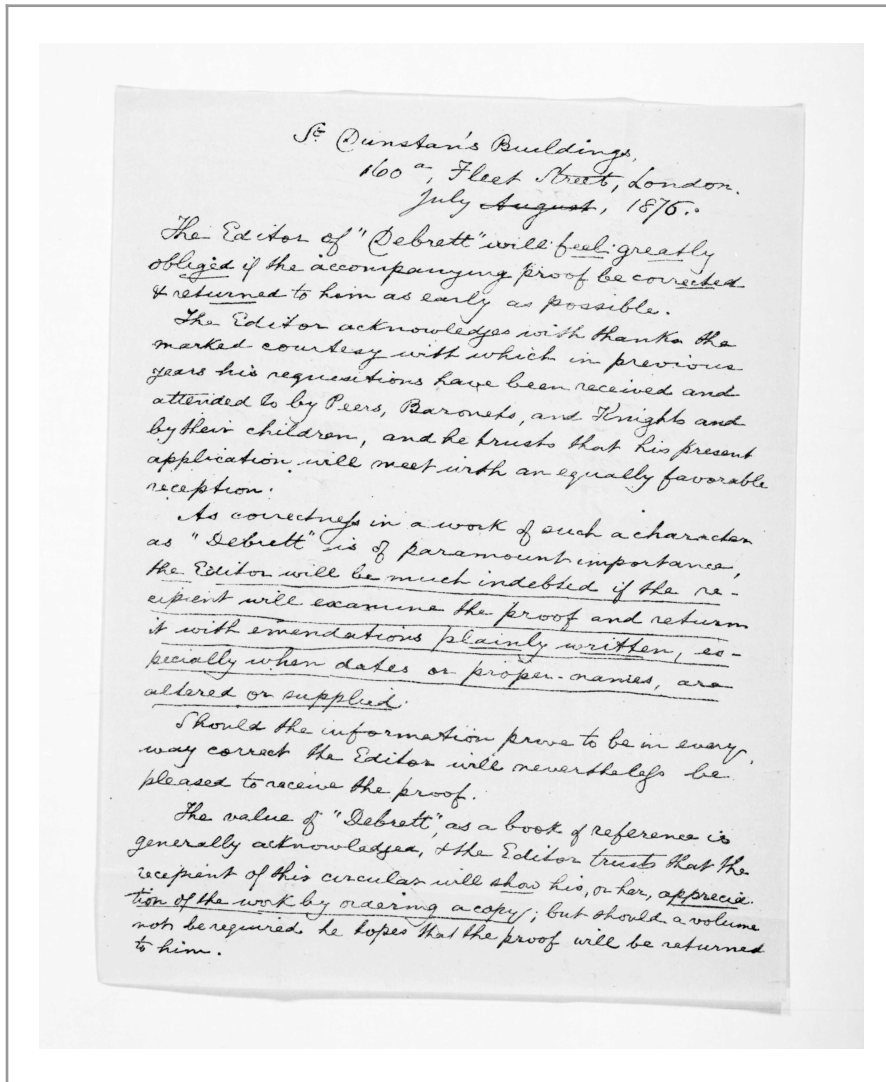 St. Dunstan's Buildings,
160a, Fleet Street, London.
July August, 1876.
The Editor of "Debrett" will feel greatly
obliged if the accompanying proof be corrected
& returned to him as early as possible.
The Editor acknowledges with thanks the
marked courtesy with which in previous
years his requisitions have been received and
attended to by Peers, Baronets, and Knights and
by their children, and he trusts that his present
application will meet with an equally favorable
reception.
As correctness in a work of such a character
as "Debrett" is of paramount importance,
the Editor will be much indebted if the re-
cipient will examine the proof and return
it with emendations plainly written, es-
pecially when dates or proper-names, are
altered or supplied.
Should the information prove to be in every
way correct the Editor will nevertheless be
pleased to receive the proof.
The value of "Debrett", as a book of reference is
generally acknowledged, & the Editor trusts that the
recepient of this circular will show his, or her, apprecia-
tion of the work by ordering a copy; but should a volume
not be required he hopes that the proof will be returned
to him.